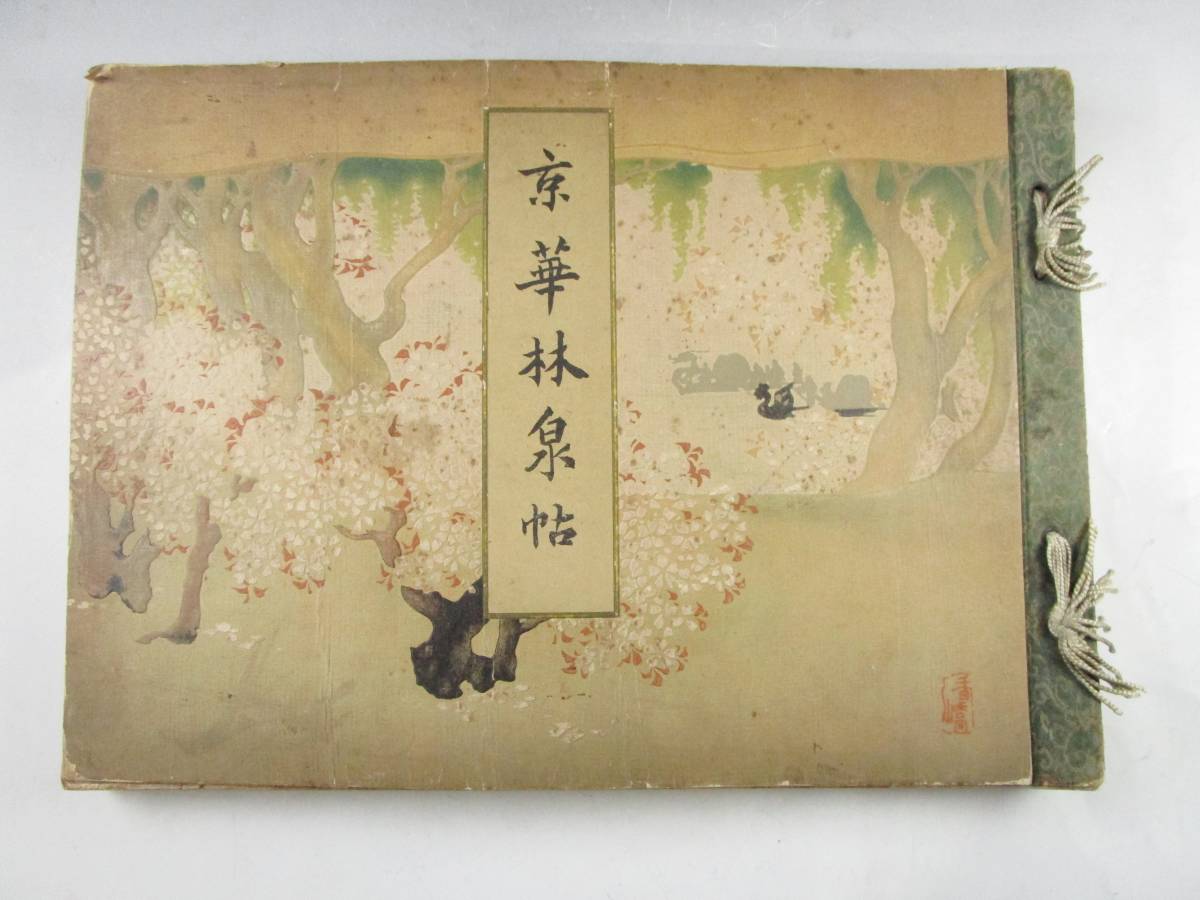 京華林泉帖